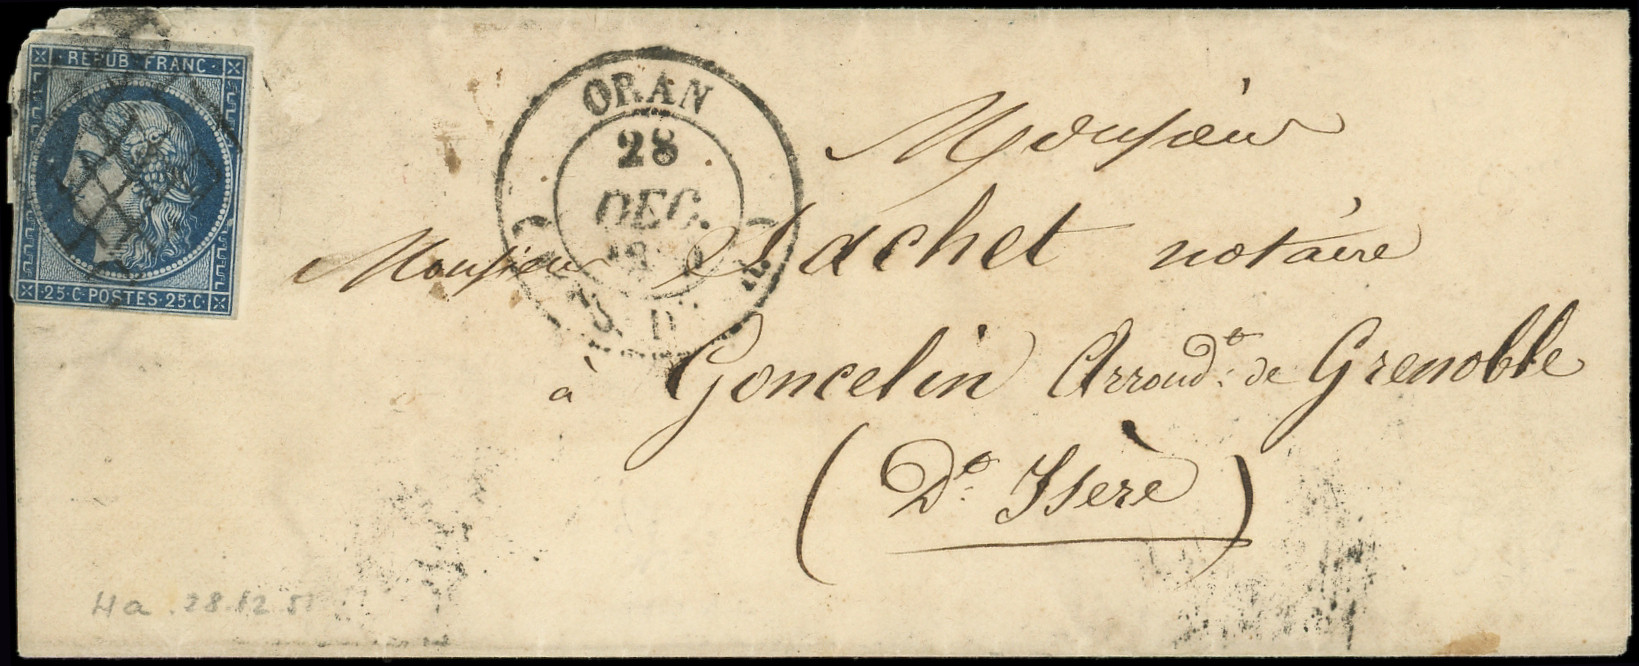 · REPUB · FRANC ·
· 25 · C · POSTES · 25 · C ·
ORAN
28
DEC.
Monsieur
Monsieur Lachet notaire
à Goncelin Arrond.t de Grenoble
(D.t Isère)
4a . 28.12.51